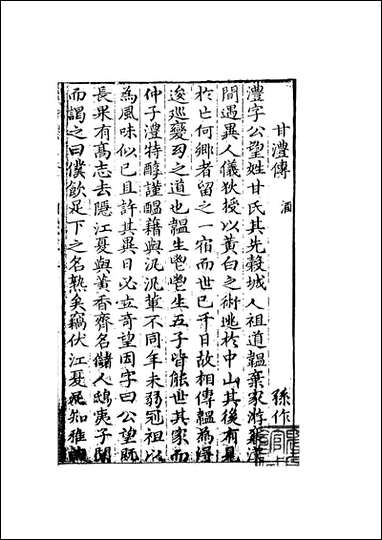 甘澧傳 酒 孫作
澧字公望姓甘氏其先穀城人祖道韞棄家游襄漢
間遇異人儀狄授以黃白之術逃於中山其後有見
於亡何鄉者留之一宿而世已千日故相傳韞為得
逡廵變化之道也韞生鬯鬯生五子皆能世其家而
仲子澧特醇謹醖藉與汎汎輩不同年未弱冠祖以
為風味似己且許其異日必立奇望因字曰公望既
長果有高志去隱江夏與黃香齊名儲人鴟夷子聞
而謁之曰僕飲足下之名熟矣竊伏江夏知雅